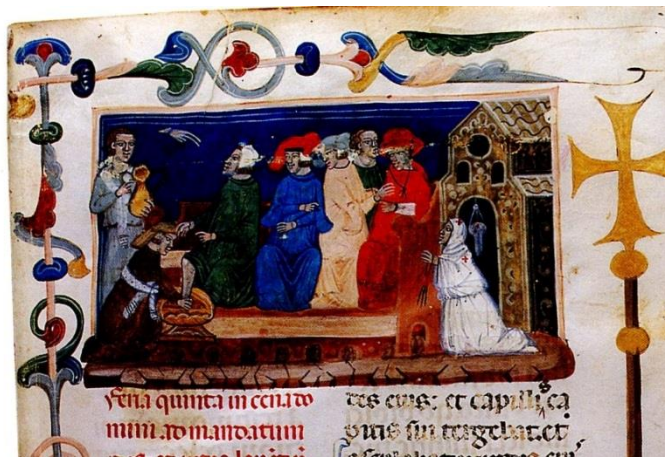 feria quinta in cena do
mini ad mandatum
des eius: et capillis ca
pitis sui tergebat. et